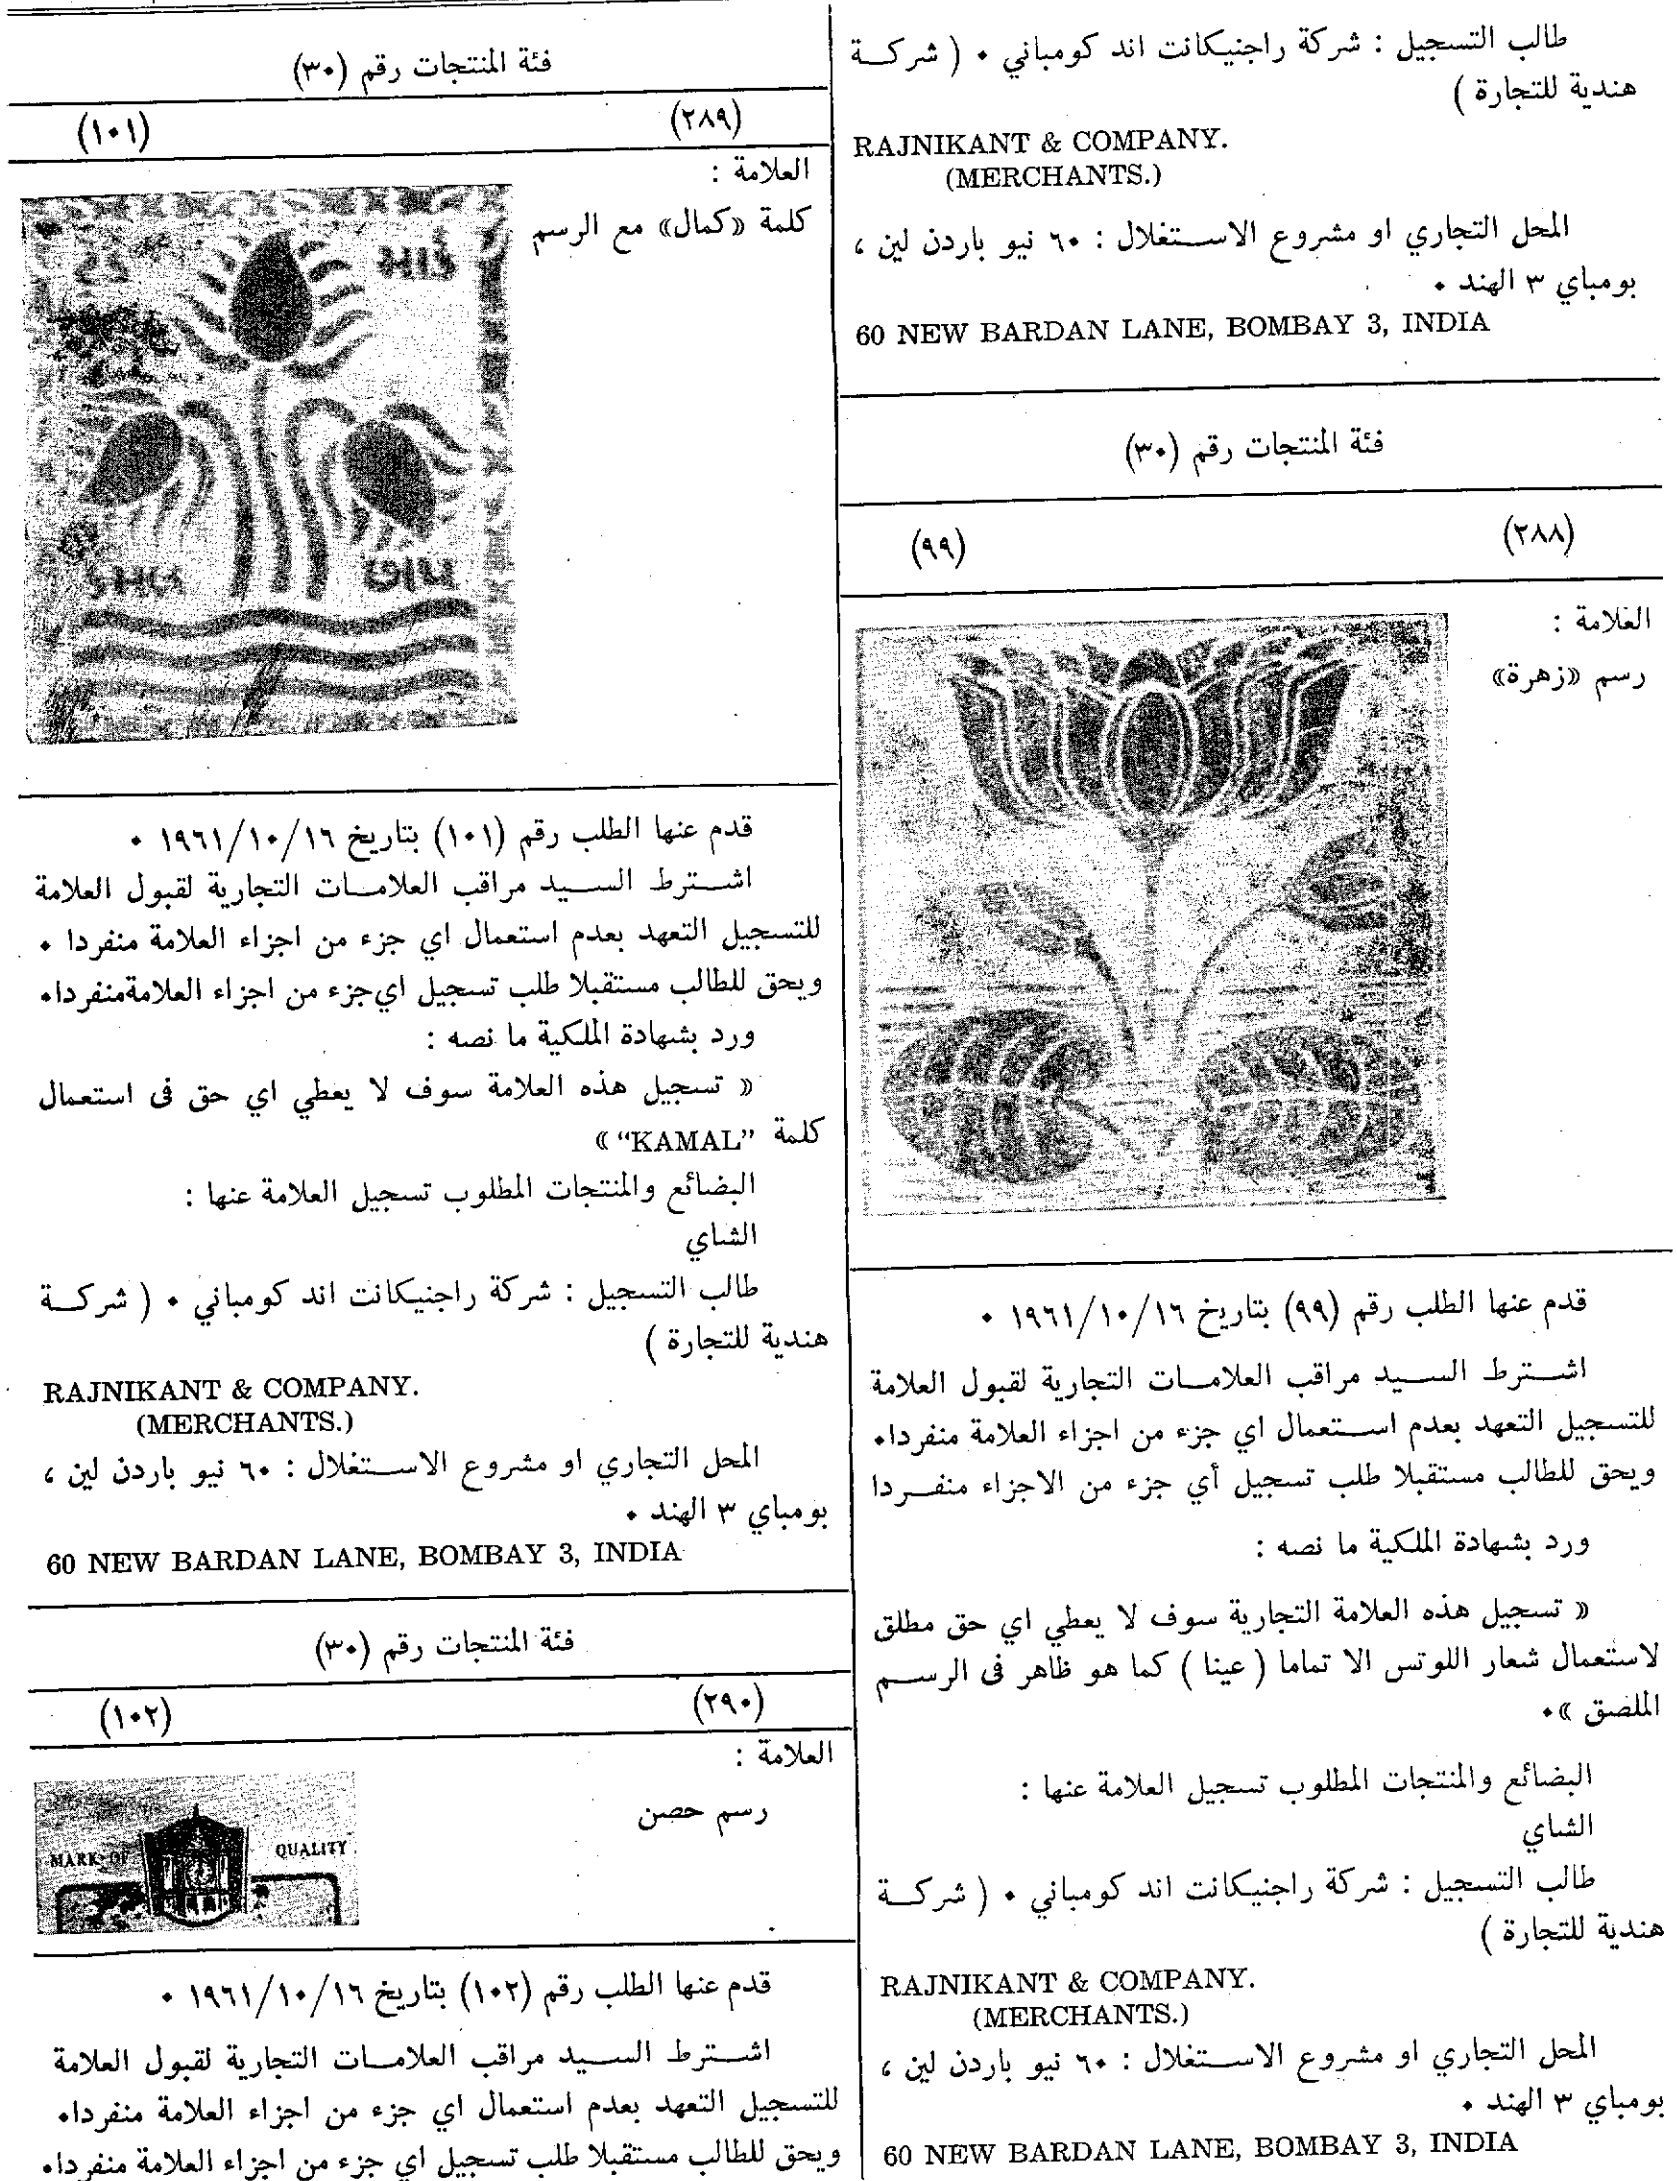 طالب التسجيل : شركة راجنيكانت اند كومباني • ( شركــة
هندية للتجارة )
RAJNIKANT & COMPANY.
(MERCHANTS.)
المحل التجاري او مشروع الاســتغلال : ٦٠ نيو باردن لين ،
بومباي ٣ الهند •
60 NEW BARDAN LANE, BOMBAY 3, INDIA
فئة المنتجات رقم (٣٠)
(٢٨٨) (٩٩)
العلامة :
رسم «زهرة»
قدم عنها الطلب رقم (٩٩) بتاريخ ١٦/١٠/١٩٦١ •
اشــترط الســيد مراقب العلامــات التجارية لقبول العلامة
للتسجيل التعهد بعدم اســتعمال اي جزء من اجزاء العلامة منفردا•
ويحق للطالب مستقبلا طلب تسجيل أي جزء من الاجزاء منفــردا
ورد بشهادة الملكية ما نصه :
« تسجيل هذه العلامة التجارية سوف لا يعطي اي حق مطلق
لاستعمال شعار اللوتس الا تماما ( عينا ) كما هو ظاهر فى الرســم
الملصق »•
البضائع والمنتجات المطلوب تسجيل العلامة عنها :
الشاي
طالب التسجيل : شركة راجنيكانت اند كومباني • ( شركــة
هندية للتجارة )
RAJNIKANT & COMPANY.
(MERCHANTS.)
المحل التجاري او مشروع الاســتغلال : ٦٠ نيو باردن لين ،
بومباي ٣ الهند •
60 NEW BARDAN LANE, BOMBAY 3, INDIA
فئة المنتجات رقم (٣٠)
(٢٨٩) (١٠١)
العلامة :
كلمة «كمال» مع الرسم
قدم عنها الطلب رقم (١٠١) بتاريخ ١٦/١٠/١٩٦١ •
اشــترط الســيد مراقب العلامــات التجارية لقبول العلامة
للتسجيل التعهد بعدم استعمال اي جزء من اجزاء العلامة منفردا •
ويحق للطالب مستقبلا طلب تسجيل اي جزء من اجزاء العلامة منفردا•
ورد بشهادة الملكية ما نصه :
« تسجيل هذه العلامة سوف لا يعطي اي حق فى استعمال
كلمة "KAMAL" »
البضائع والمنتجات المطلوب تسجيل العلامة عنها :
الشاي
طالب التسجيل : شركة راجنيكانت اند كومباني • ( شركــة
هندية للتجارة )
RAJNIKANT & COMPANY.
(MERCHANTS.)
المحل التجاري او مشروع الاســتغلال : ٦٠ نيو باردن لين ،
بومباي ٣ الهند •
60 NEW BARDAN LANE, BOMBAY 3, INDIA
فئة المنتجات رقم (٣٠)
(٢٩٠) (١٠٢)
العلامة :
رسم حصن
MARK OF QUALITY
قدم عنها الطلب رقم (١٠٢) بتاريخ ١٦/١٠/١٩٦١ •
اشــترط الســيد مراقب العلامــات التجارية لقبول العلامة
للتسجيل التعهد بعدم استعمال اي جزء من اجزاء العلامة منفردا•
ويحق للطالب مستقبلا طلب تسجيل اي جزء من اجزاء العلامة منفردا•